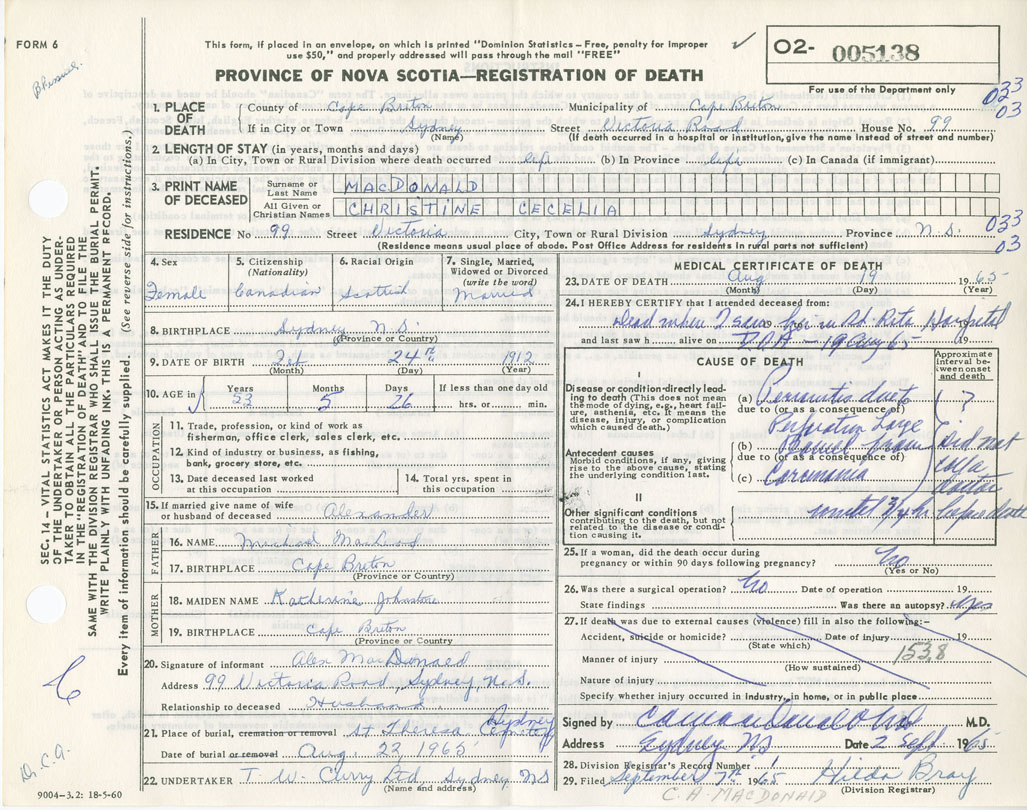 FORM 6
This form, if placed in an envelope, on which is printed "Dominion Statistics – Free, penalty for improper
use $50," and properly addressed will pass through the mail "FREE"
O2- 005138
For use of the Department only
PROVINCE OF NOVA SCOTIA—REGISTRATION OF DEATH
033
03
1. PLACE OF DEATH
County of Cape Breton Municipality of Cape Breton
If in City or Town Sydney Street Victoria Road House No. 99
(Name) (If death occurred in a hospital or institution, give the name instead of street and number)
2. LENGTH OF STAY (in years, months and days)
(a) In City, Town or Rural Division where death occurred life (b) In Province life (c) In Canada (if immigrant)
3. PRINT NAME OF DECEASED
Surname or Last Name MACDONALD
All Given or Christian Names CHRISTINE CECELIA
033
03
RESIDENCE No 99 Street Victoria City, Town or Rural Division Sydney Province N.S.
(Residence means usual place of abode. Post Office Address for residents in rural parts not sufficient)
4. Sex Female
5. Citizenship (Nationality) Canadian
6. Racial Origin Scottish
7. Single, Married, Widowed or Divorced (write the word) Married
8. BIRTHPLACE Sydney N.S.
(Province or Country)
9. DATE OF BIRTH 24th 1912
(Month) (Day) (Year)
10. AGE in Years 53 Months 5 Days 26 If less than one day old hrs. or min.
OCCUPATION
11. Trade, profession, or kind of work as
fisherman, office clerk, sales clerk, etc.
12. Kind of industry or business, as fishing,
bank, grocery store, etc.
13. Date deceased last worked
at this occupation
14. Total yrs. spent in
this occupation
15. If married give name of wife
or husband of deceased Alexander
FATHER
16. NAME Michael
17. BIRTHPLACE Cape Breton
(Province or Country)
MOTHER
18. MAIDEN NAME Katherine Johnstone
19. BIRTHPLACE Cape Breton
(Province or Country)
20. Signature of informant Alex MacDonald
Address 99 Victoria Road, Sydney, N.S.
Relationship to deceased Husband
21. Place of burial, cremation or removal St Theresa Cemetery Sydney
Date of burial or removal Aug. 23 1965
22. UNDERTAKER T. W. Curry Ltd, Sydney NS
(Name and address)
MEDICAL CERTIFICATE OF DEATH
23. DATE OF DEATH Aug 19 1965
(Month) (Day) (Year)
24. I HEREBY CERTIFY that I attended deceased from:
Dead when I saw her in St Rita Hospital
and last saw h alive on D.O.A – 19 Aug 65 19
CAUSE OF DEATH
Approximate interval between onset and death
I
Disease or condition directly leading to death (This does not mean the mode of dying, e.g., heart failure, asthenia, etc. It means the disease, injury, or complication which caused death.)
(a) Peritonitis due to ?
due to (or as a consequence of)
Perforation Large
Antecedent causes
Morbid conditions, if any, giving rise to the above cause, stating the underlying condition last.
(b) Bowel from did not
due to (or as a consequence of) call a
(c) Carcinoma doctor
II
Other significant conditions
contributing to the death, but not related to the disease or condition causing it.
until hr before death
25. If a woman, did the death occur during
pregnancy or within 90 days following pregnancy? No
(Yes or No)
26. Was there a surgical operation? No Date of operation 19
State findings Was there an autopsy? Yes
27. If death was due to external causes (violence) fill in also the following:–
Accident, suicide or homicide? Date of injury 19
(State which)
153.8
Manner of injury
(How sustained)
Nature of injury
Specify whether injury occurred in industry, in home, or in public place
Signed by M.D.
Address Sydney NS Date 2 Sept 1965
28. Division Registrar's Record Number
29. Filed September 7th 1965 Hilda Bray
(Division Registrar)
C. A. MACDONALD
SEC. 14 – VITAL STATISTICS ACT MAKES IT THE DUTY
OF THE UNDERTAKER OR PERSON ACTING AS UNDER-
TAKER TO OBTAIN ALL THE PARTICULARS REQUIRED
IN THE "REGISTRATION OF DEATH" AND TO FILE THE
SAME WITH THE DIVISION REGISTRAR WHO SHALL ISSUE THE BURIAL PERMIT.
WRITE PLAINLY WITH UNFADING INK. THIS IS A PERMANENT RECORD.
Every item of information should be carefully supplied. (See reverse side for instructions.)
Dr. C. A.
9004-3.2: 18-5-60